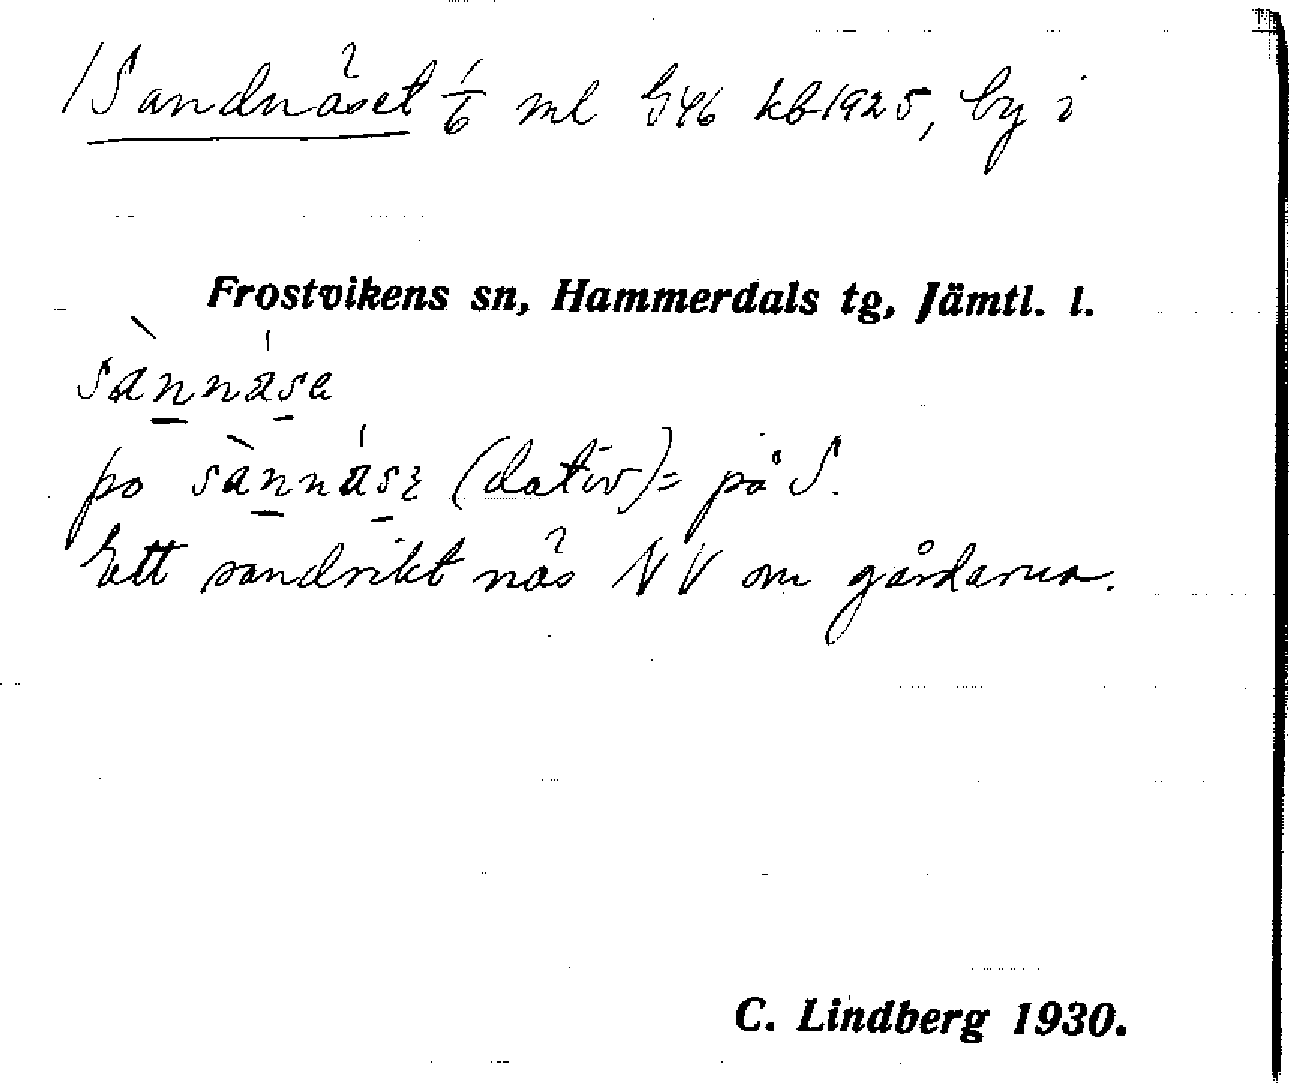 /Sandnäset 1/6 ml G46 kb 1925, by i
Frostvikens sn, Hammerdals tg, Jämtl. l.
sànnása
po sànnásı (dativ) = på S.
Ett sandrikt näs NV om gårdarna.
C. Lindberg 1930.